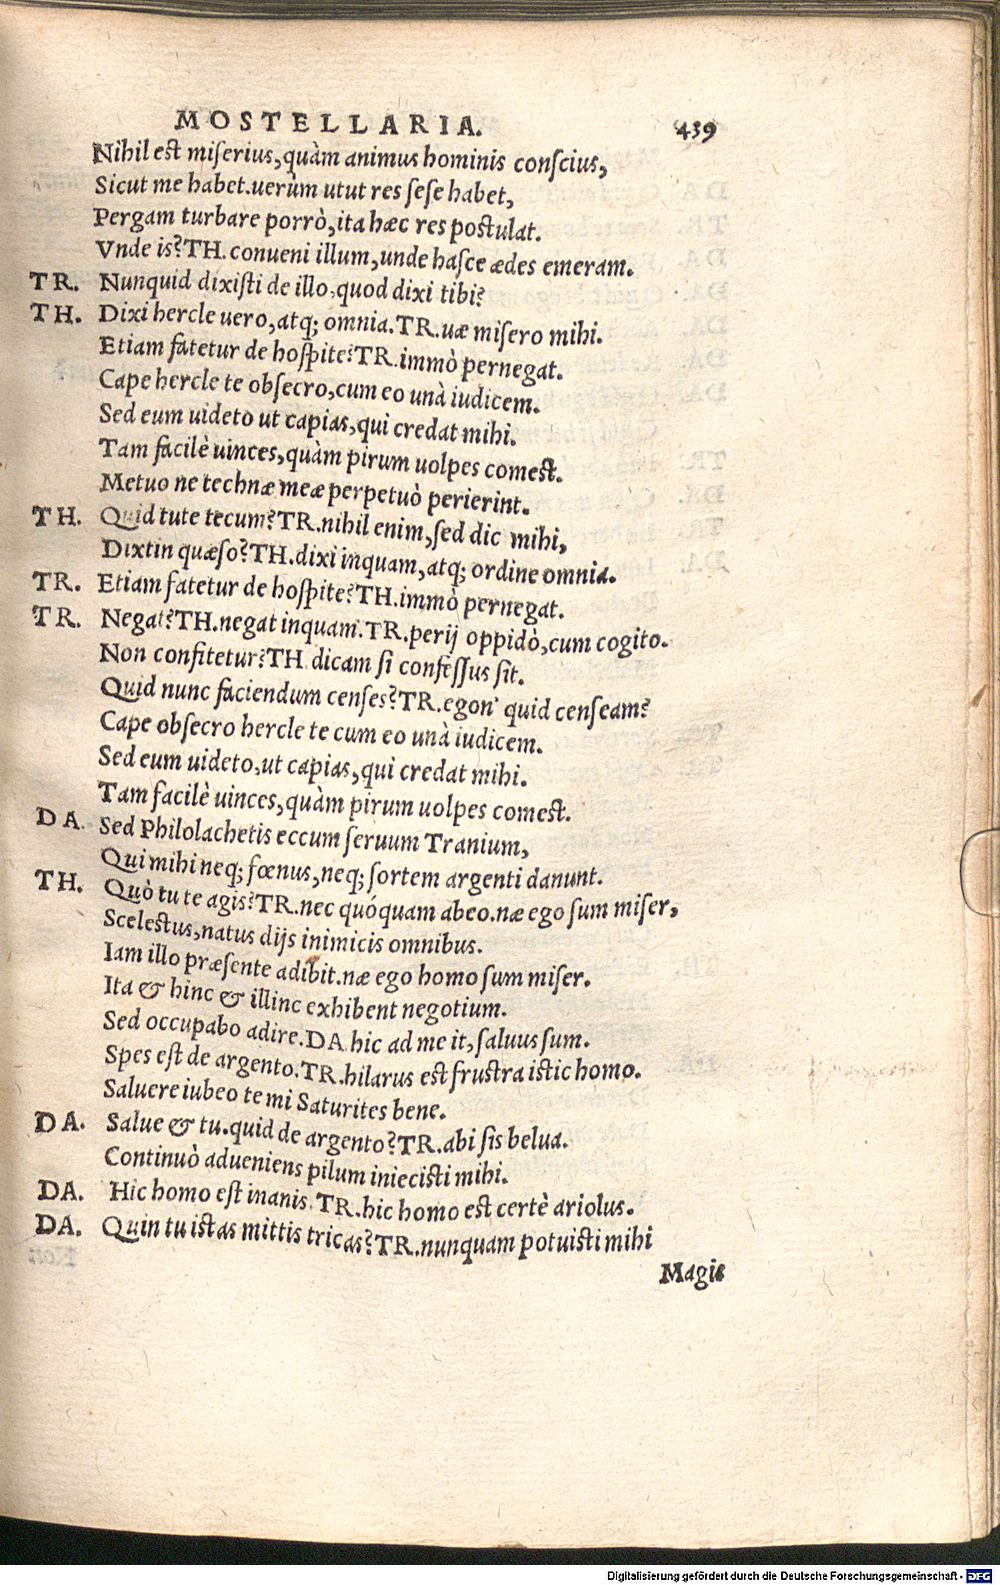 MOSTELLARIA. 439
Nihil est miserius, quàm animus hominis conscius,
Sicut me habet. uerùm utut res sese habet,
Pergam turbare porrò, ita hæc res postulat.
Vnde is? TH. conueni illum, unde hasce ædes emeram.
TR. Nunquid dixisti de illo, quod dixi tibi?
TH. Dixi hercle uero, atq; omnia. TR. uæ misero mihi.
Etiam fatetur de hospite? TR. immò pernegat.
Cape hercle te obsecro, cum eo unà iudicem.
Sed eum uideto ut capias, qui credat mihi.
Tam facilè uinces, quàm pirum uolpes comest.
Metuo ne technæ meæ perpetuò perierint.
TH. Quid tute tecum? TR. nihil enim, sed dic mihi,
Dixtin quæso? TH. dixi inquam, atq; ordine omnia.
TR. Etiam fatetur de hospite? TH. immò pernegat.
TR. Negat? TH. negat inquam. TR. perij oppidò, cum cogito.
Non confitetur? TH. dicam si confessus sit.
Quid nunc faciendum censes? TR. egon' quid censeam?
Cape obsecro hercle te cum eo unà iudicem.
Sed eum uideto, ut capias, qui credat mihi.
Tam facilè uinces, quàm pirum uolpes comest.
DA. Sed Philolachetis eccum seruum Tranium,
Qui mihi neq; fœnus, neq; sortem argenti danunt.
TH. Quò tu te agis? TR. nec quóquam abeo. næ ego sum miser,
Scelestus, natus dijs inimicis omnibus.
Iam illo præsente adibit. næ ego homo sum miser.
Ita & hinc & illinc exhibent negotium.
Sed occupabo adire. DA. hic ad me it, saluus sum.
Spes est de argento. TR. hilarus est frustra istic homo.
Saluere iubeo te mi Saturites bene.
DA. Salue & tu. quid de argento? TR. abi sis belua.
Continuò adueniens pilum iniecisti mihi.
DA. Hic homo est inanis. TR. hic homo est certè ariolus.
DA. Quin tu istas mittis tricas? TR. nunquam potuisti mihi
Magis
Digitalisierung gefördert durch die Deutsche Forschungsgemeinschaft - DFG